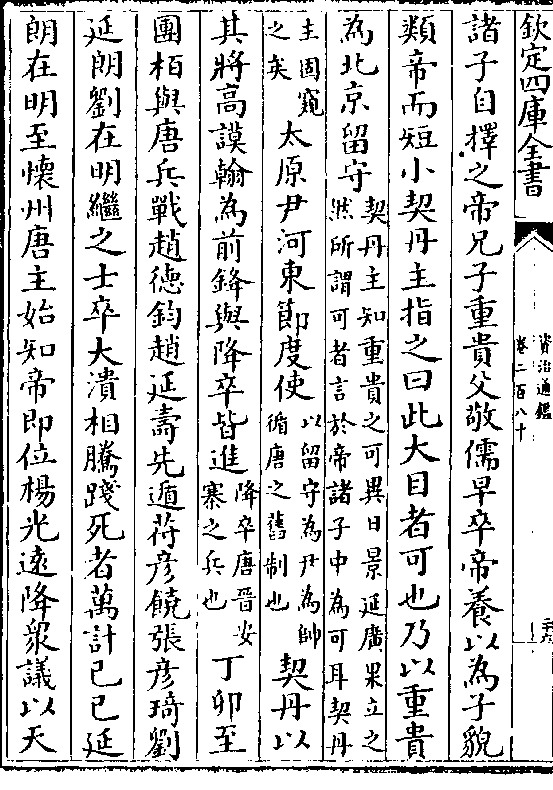 欽定四庫全書
資治通鑑
卷二百八十
諸子自擇之帝兄子重貴父敬儒早卒帝養以為子貌
類帝而短小契丹主指之曰此大目者可也乃以重貴
為北京留守
契丹主知重貴之可異日景延廣果立之
然所謂可者言於帝諸子中為可耳契丹
主固窺
之矣
太原尹河東節度使
以留守為尹為帥
循唐之舊制也
契丹以
其將高謨翰為前鋒與降卒皆進
降卒唐晉安
寨之兵也
丁卯至
團柏與唐兵戰趙德鈞趙延壽先遁苻彦饒張彦琦劉
延朗劉在明繼之士卒大潰相騰踐死者萬計己已延
朗在明至懷州唐主始知帝即位楊光遠降衆議以天